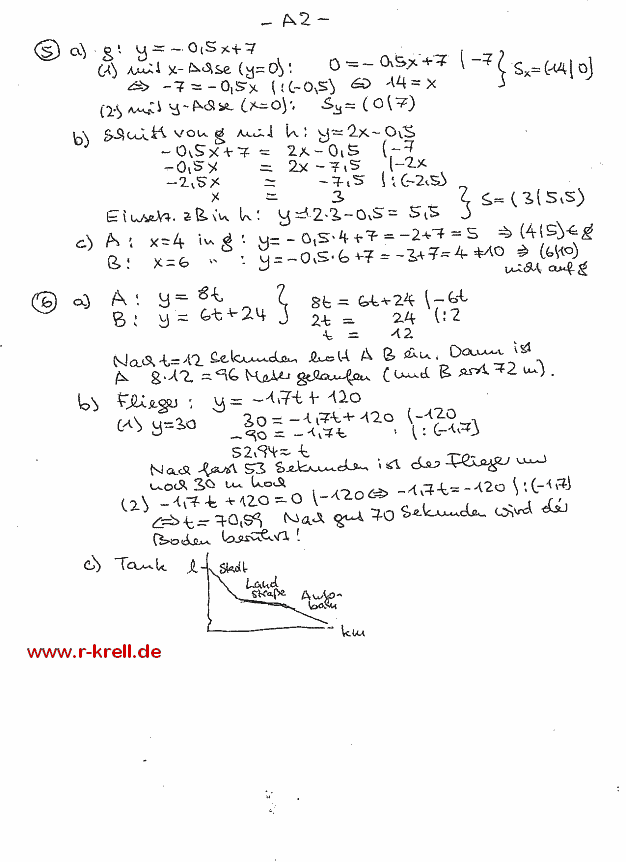 - A2 -
⑤ a) g: y = - 0,5x+7
(1) mit x-Achse (y=0): 0 = - 0,5x +7 | -7
⇔ -7 = -0,5x |:(-0,5) ⇔ 14 = x } Sx = (14|0)
(2) mit y-Achse (x=0): Sy = (0|7)
b) Schnitt von g mit h: y = 2x - 0,5
-0,5x+7 = 2x - 0,5 |-7
-0,5x = 2x - 7,5 |-2x
-2,5x = -7,5 |:(-2,5)
x = 3
Einsetz. zB in h: y = 2·3 - 0,5 = 5,5 } S = (3|5,5)
c) A: x=4 in g: y = - 0,5·4+7 = -2+7 = 5 ⇒ (4|5) ∈ g
B: x=6 " : y = -0,5·6+7 = -3+7 = 4 ≠ 10 ⇒ (6|10)
nicht auf g
⑥ a) A: y = 8t
B: y = 6t+24 } 8t = 6t+24 |-6t
2t = 24 |:2
t = 12
Nach t=12 Sekunden holt A B ein. Dann ist
A 8·12 = 96 Meter gelaufen (und B erst 72 m).
b) Flieger: y = -1,7t + 120
(1) y=30 30 = -1,7t + 120 |-120
-90 = -1,7t |:(-1,7)
52,94 = t
Nach fast 53 Sekunden ist der Flieger nur
noch 30 m hoch
(2) -1,7t + 120 = 0 |-120 ⇔ -1,7t = -120 |:(-1,7)
⇔ t = 70,59 Nach gut 70 Sekunden wird der
Boden berührt!
c) Tank l
Stadt
Land
straße
Auto-
bahn
km
www.r-krell.de